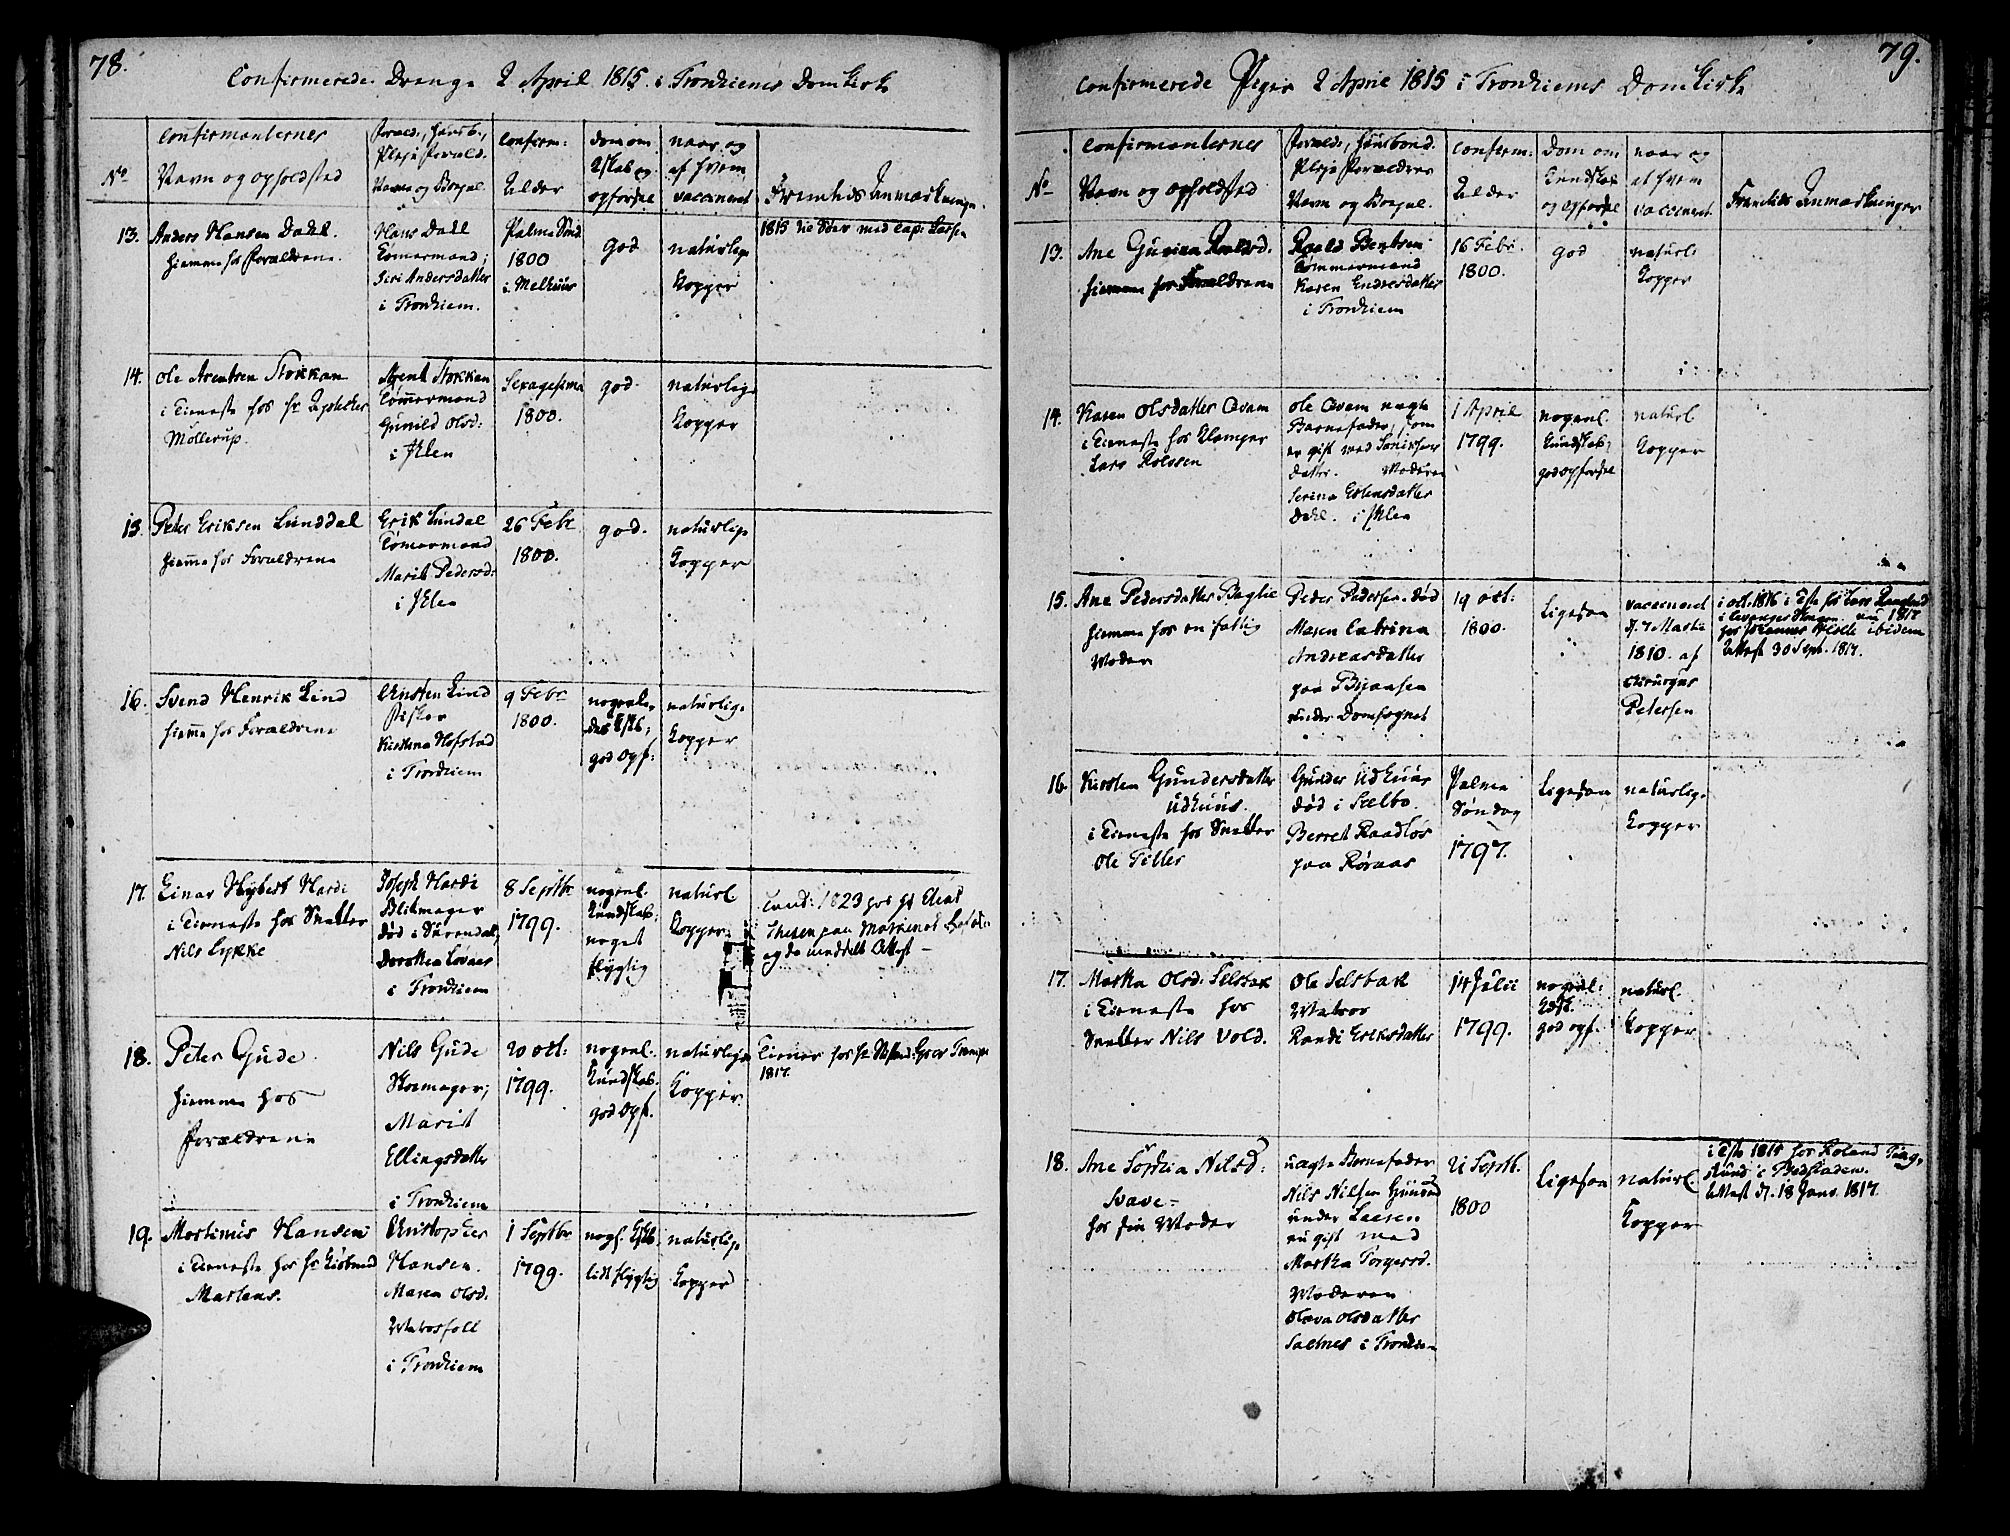 78.
Confirmerede Drenge 2 April 1815 i Trondhiems Domkirke
No
Confirmanternes
Navn og opholdsted
Foræld., Huusb.,
Pleje Foræld.
Navn og Boepæl.
Confirm:
Alder
Dom om
Kskab og
opførsel
naar og
af hvem
vaccineret
Fremtids Anmærkninger.
13.
Anders Hansen Dahl.
hiemme hos Forældrene.
Hans Dahl
Tømermand;
Siri Andersdatter
i Trondhiem.
Palme Sønd.
1800
i Melhuus
god
naturlige
Kopper
1815 til Søes med Cap: Larsen
14.
Ole Arentsen Stokkan
i Tieneste hos Hr Apoteker
Møllerup.
Arent Stokkan
Tømmermand
Gunild Olsd:
i Ihlen
Sexagesima
1800.
god.
naturlige
Kopper
15.
Peter Eriksen Lunddal
hiemme hos Forældrene
Erik Lundal
Tømermand
Marit Pedersd:
i Ihlen
26 Febr
1800.
god.
naturlige
Kopper
16.
Svend Henrik Lind
hiemme hos Forældrene
Christen Lind
Fisker
Kirstina Hofstad
i Trondhiem
9 Febr
1800.
nogenle-
des Kskb;
god opf:
naturlige
Kopper
17.
Einar Hybert Hardi
i Tieneste hos Snedker
Nils Lykke
Joseph Hardi
Blikmager
død i Surendal,
Dorothea Løvaas
i Trondhiem
8 Septbr
1799.
nogenl.
Kundskab;
noget
flygtig
naturl.
Kopper
Cand: 1823 hos Hr Elias
og da meddelt Attest —
18.
Peter Gude
hiemme hos
Forældrene
Nils Gude
Skomager;
Marit
Ellingsdatter
i Trondhiem
20 oct:
1799.
nogenl.
Kundskab.
god Opf.
naturlige
Kopper
Tiener hos Hr Stiftamt: Grev Trampe
1817.
19.
Mortinus Hansen
i Tieneste hos Hr Kiøbmd
Martens.
Christopher
Hansen.
Maren Olsd.
i Trondhiem
1 Septbr
1799.
nogl. Kskb
lidt flygtig
naturlige
Kopper
79.
Confirmerede Piger 2 April 1815 i Trondhiems Domkirke
No
Confirmanternes
Navn og Opholdsted
Foræld., Huusbond.
Pleje Forældres
Navn og Boepæl.
Confirm:
Alder
Dom om
Kundskab
og opførsel
naar og
af hvem
vaccineret
Fremtids Anmærkninger
13.
Ane Gurina Roalsd.
hiemme hos Forældrene
Roald Bentsen
Tømmermand
Karen Endresdatter
i Trondhiem
16 Febr.
1800.
god
naturl.
Kopper
14.
Karen Olsdatter Qvam
i Tieneste hos Klamper
Lars Rolssen
Ole Qvam uægte
Barnefader, som
er gift med
datter. Moderen
Serina Estensdatter
Dahl. i Ihlen
1 April
1799.
nogenl.
Kundskab;
god opførsel
naturl.
Kopper
15.
Ane Pedersdatter Baglie
hiemme hos en fattig
Moder
Peder Pedersen. død
Maren Catrina
Andreasdatter
paa Bijaasen
under Domsognet
19 oct:
1800.
Ligesaa
vaccineret
d. 7 Martii
1810. af
Chirurgus
Petersen
i oct. 1816 i Tste hos Lars
i Levanger Skogn. nu 1817
hos Johannes ibidem
Attest 30 Sept. 1817.
16.
Kirsten Gundersdatter
Udhuus.
i Tieneste hos Snedker
Ole Tiller
Gunder Udhuus
død i Selbo.
Berret Raadløs
paa Røraas
Palme
Søndag
1797.
Ligesaa
naturlige
Kopper
17.
Martha Olsd. Selsbak
i Tieneste hos
Snedker Nils Vold.
Ole Selsbak
Matros
Randi Eriksdatter
14 Julii
1799.
nogenl:
Kdsk.
god opf.
naturl.
Kopper
18.
Ane Sophia Nilsd:
Svave -
hos sin Moder
uægte Barnefader
Nils Nilsen
under Laesen
nu gift med
Martha Torgersd.
Moderen
Olava Olsdatter
Saltnes i Trondhiem
21 Septb.
1800
Ligesaa
naturl.
Kopper
i Tste 1815 hos Roland Ting,
Attest d. 18 Janv. 1817.